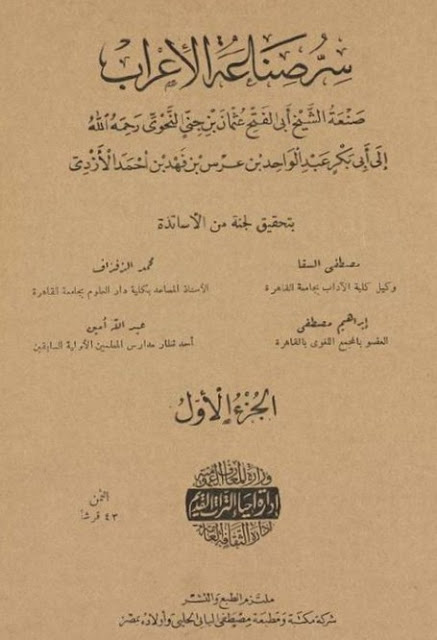 سِرُّ صِنَاعَةِ الإِعْرَاب
صَنْعَةُ الشَّيْخِ أَبِى الفَتْحِ عُثْمَانَ بْنِ جِنِّىّ النَّحْوِىّ رَحِمَهُ اللهُ
إلى أَبِى بَكْرٍ عَبْدِ الْوَاحِدِ بْنِ عَرْسِ بْنِ فَهْدِ بْنِ أَحْمَدَ الْأَزْدِىّ
بتحقيق لجنة من الأساتذة
مصطفى السقا
محمد الزفزاف
وكيل كلية الآداب بجامعة القاهرة
الأستاذ المساعد بكلية دار العلوم بجامعة القاهرة
إبراهيم مصطفى
عبد الله أمين
العضو بالمجمع اللغوى بالقاهرة
أحد نظار مدارس المعلمين الأولية السابقين
الجُزْءُ الأَوَّل
وزارة المعارف العمومية
إدارة إحياء التراث القديم
إدارة الثقافة العامة
الثمن
٤٣ قرشا
ملتزم الطبع والنشر
شركة مكتبة ومطبعة مصطفى البابى الحلبى وأولاده بمصر